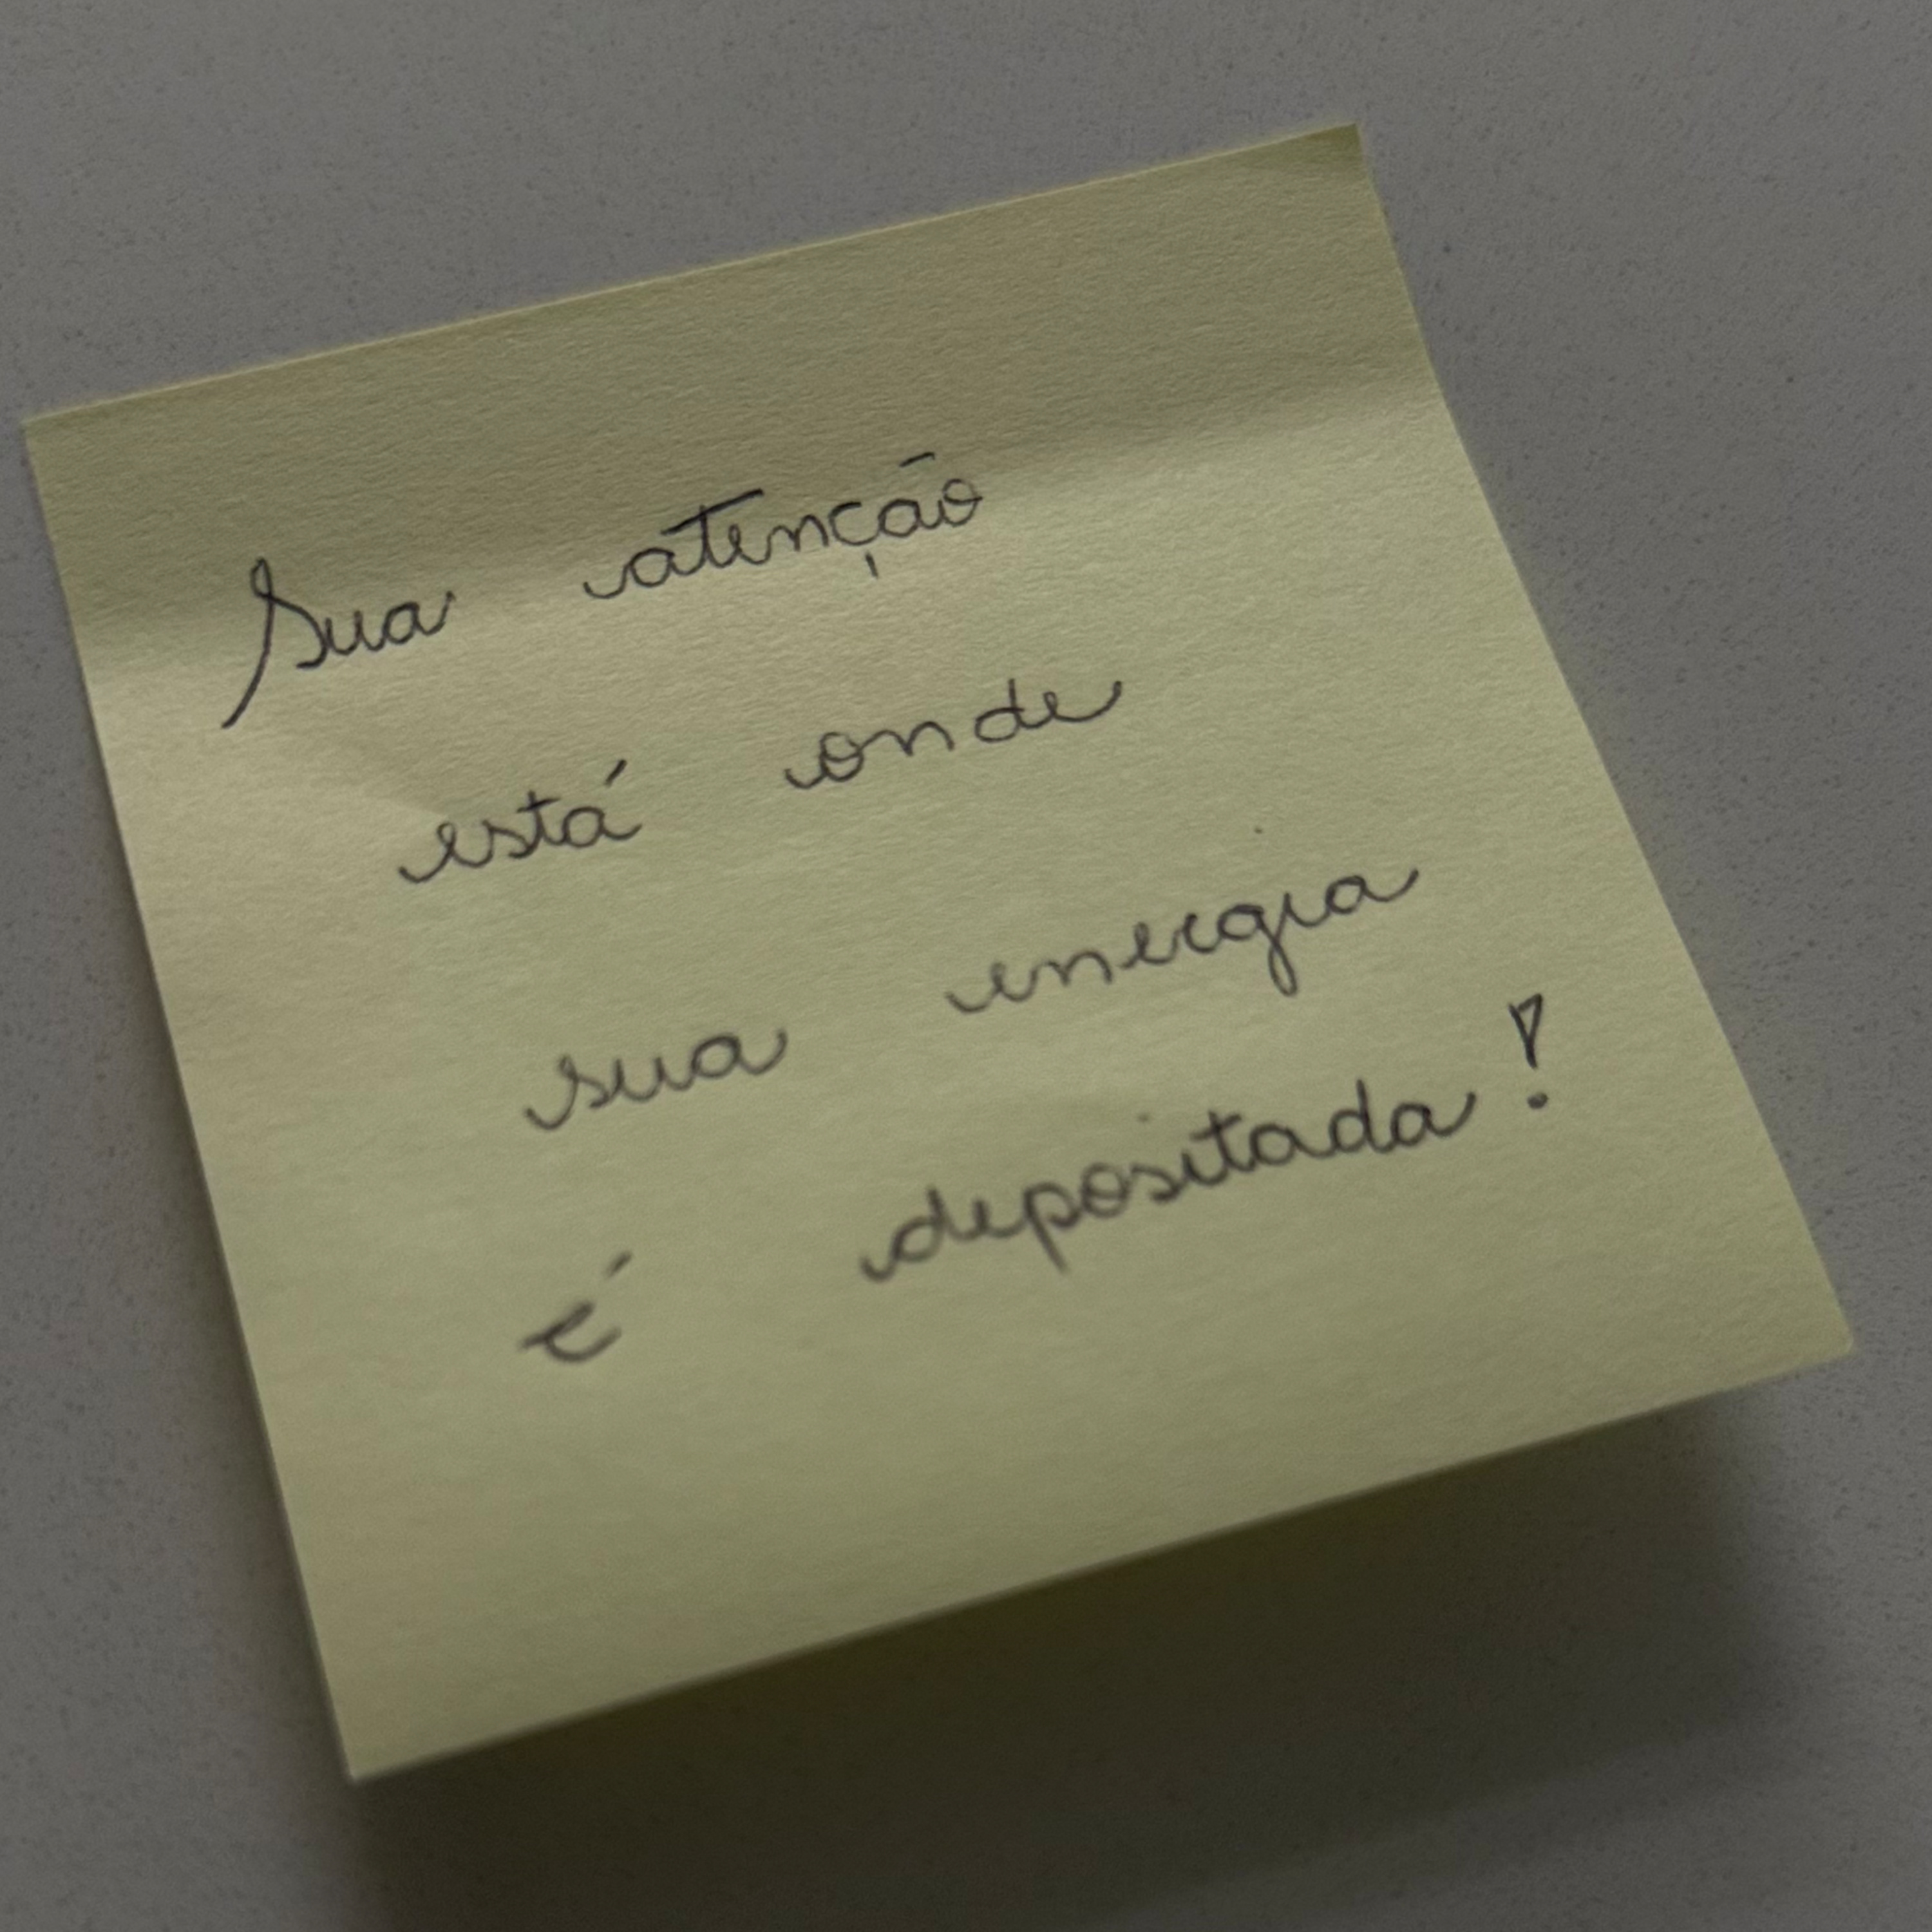 Sua atenção
está onde
sua energia
é depositada!